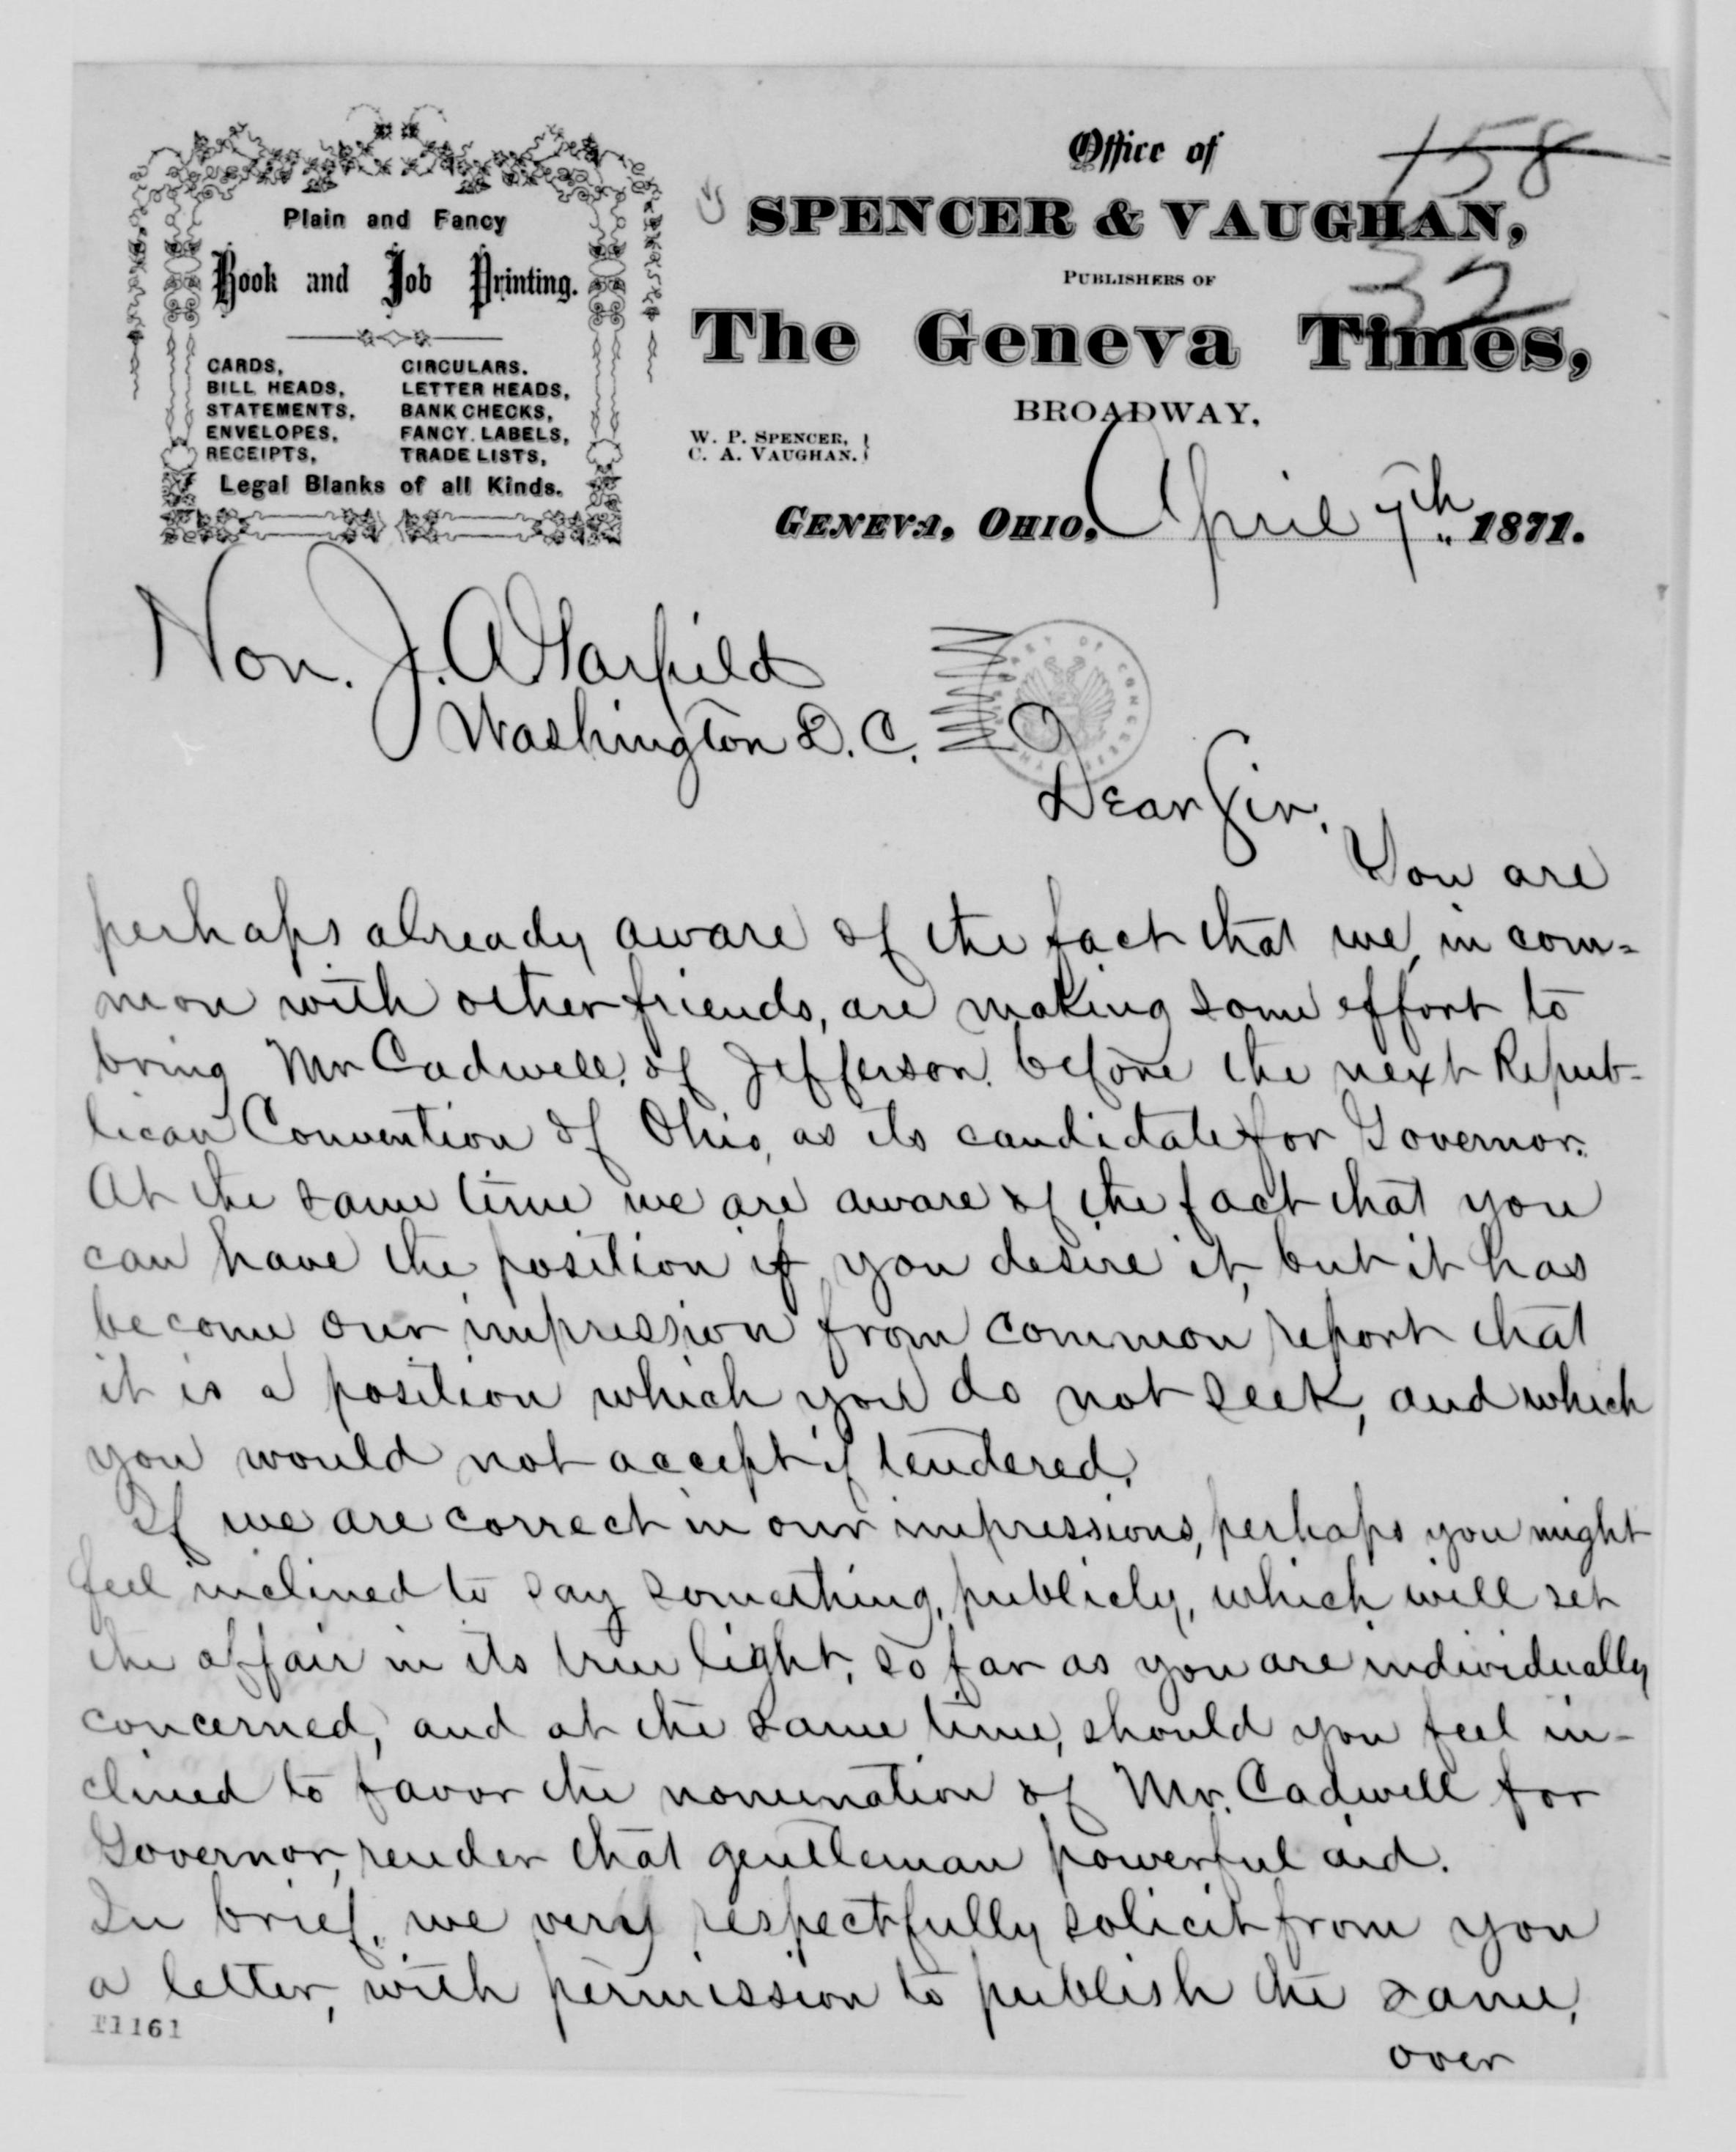 Plain and Fancy
Book and Job Printing.
CARDS, CIRCULARS.
BILL HEADS, LETTER HEADS,
STATEMENTS, BANK CHECKS,
ENVELOPES, FANCY LABELS,
RECEIPTS, TRADE LISTS,
Legal Blanks of all Kinds.
Office of
158
SPENCER & VAUGHAN,
PUBLISHERS OF
32
The Geneva Times,
BROADWAY,
W. P. SPENCER,
C. A. VAUGHAN.
GENEVA, OHIO, April 7th 1871.
Hon. J. A. Garfield
Washington D. C.
Dear Sir.
You are
perhaps already aware of the fact that we, in com=
mon with other friends, are making some effort to
bring Mr Cadwell, of Jefferson, before the next Repub-
lican Convention of Ohio, as its candidate for Governor.
At the same time we are aware of the fact that you
can have the position if you desire it, but it has
become our impression from common report that
it is a position which you do not seek, and which
you would not accept if tendered.
If we are correct in our impressions, perhaps you might
feel inclined to say something, publicly, which will set
the affair in its true light, so far as you are individually
concerned, and at the same time, should you feel in-
clined to favor the nomination of Mr. Cadwell for
Governor, render that gentleman powerful aid.
In brief, we very respectfully solicit from you
a letter, with permission to publish the same,
11161
over